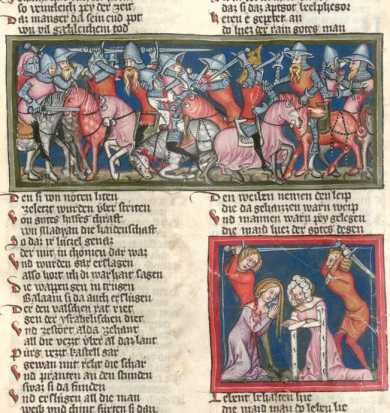 so veintleich pey der zeit
Da manger da sein end pot
von vil gæhleichem tod
daz si daz aptgot beelphegor
an
do hiez der rain gotes man
Den si von nöten liten
zeletzt wurden über striten
Von gotes hilfes chraft
von Madyan die haidenschaft
So daz ir lützel genaz
der mit in chomen dar waz
Vnd wurden gar erslagen
also hort ich di warhait sagen
Di wappen gen in trugen
Balaam si da auch erslugen
Der den valschen rat riet
gen der ysrahelischen diet
Vnd zestört alda zehant
all die vezt über al daz lant
Purg vezt kastell gar
gewan mit recht die schar
Vnd pranten an den stunden
swaz si da funden
Vnd erslugen all die man
weib vnd chint fürten si dan
Den weiben nemen den leip
die da gehaizzen warn weip
Vnd mannen warn pey gelegen
die maid hiez der gotes degen
Lebent behalten hie
die maid man do leben lie